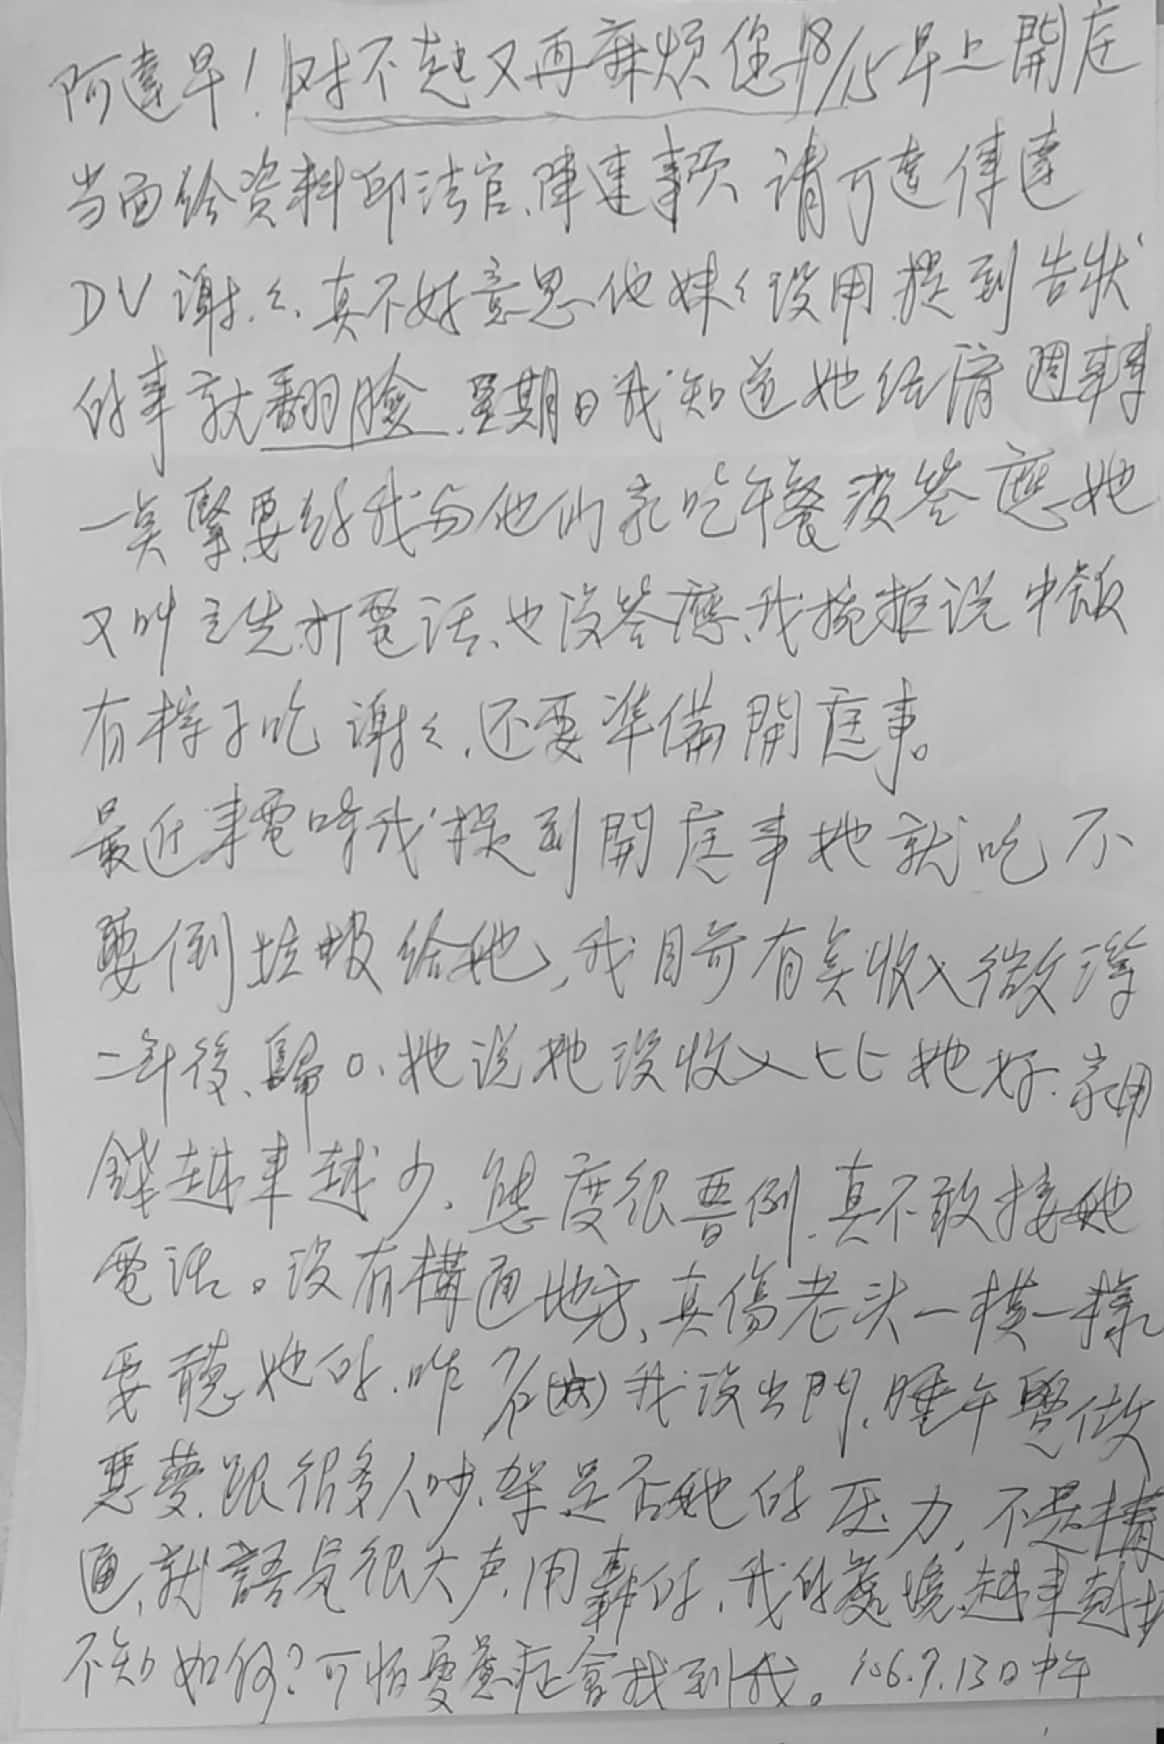 阿達早！对不起又再麻煩您8/15早上開庭
当面给資料印法官、陳達事项 請可達傳達
DV 謝々、真不好意思他妹々没用,提到告狀
的事就翻臉、星期日我知道她经濟週轉
一矣緊,要约我与他们家吃午餐没答應她
又叫 先打電話、也没答應、我婉拒说中飯
有粽子吃 謝々,还要準備開庭事。
最近来電時我提到開庭事她就吃不
要倒垃圾给她、我目前有矣收入微薄
二年後、歸0、她说她没收入比她好.家用
錢越来越少、態度很 例.真不敢接她
電话。没有構通地方、真傷老头一模一樣
要聽她的.昨 我没出門,睡午覺做
惡夢.跟很多人吵架是否她的压力,不是構
通,就語氣很大声.用 的、我的處境越来越
不知如何？可怕憂慮症會找到我。106.9.13日中午